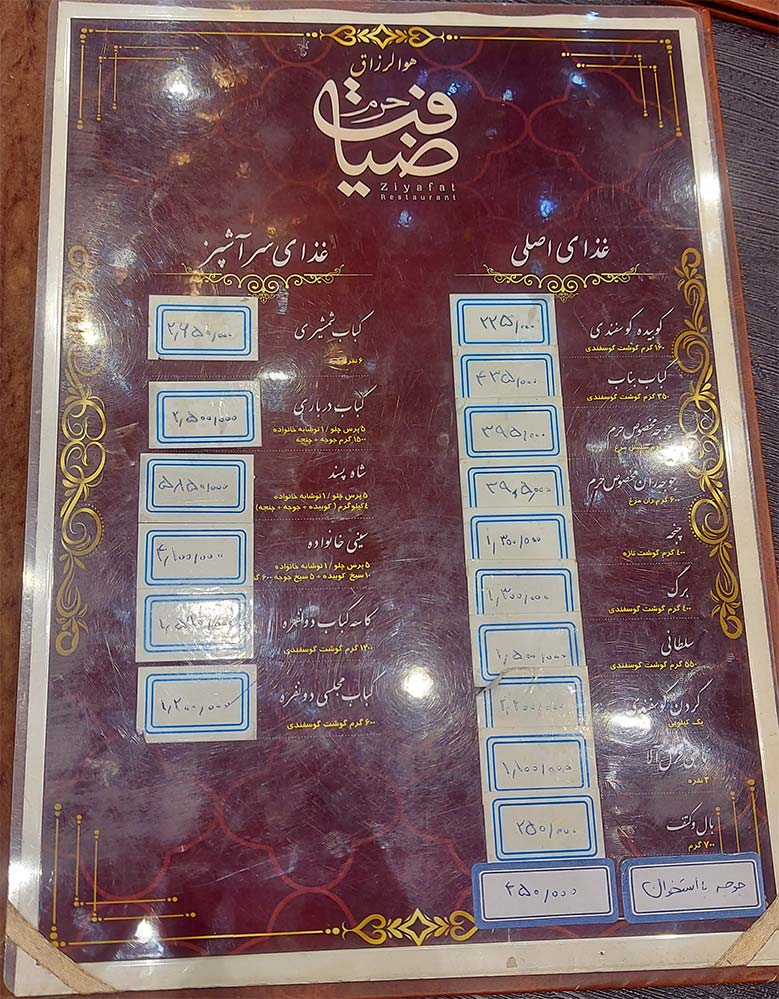 هوالرزاق
ضیافت حرم
Ziyafat
Restaurant
غذای اصلی
کوبیده گوسفندی
۲۲۵/۰۰۰
۱۶۰ گرم گوشت گوسفندی
کباب بناب
۴۳۵/۰۰۰
۳۵۰ گرم گوشت گوسفندی
جوجه مخصوص حرم
۳۹۵/۰۰۰
مرغ
جوجه ران مخصوص حرم
۳۹۵/۰۰۰
۶۰۰ گرم ران مرغ
چنجه
۱,۳۰۰/۰۰۰
٤٠٠ گرم گوشت تازه
برگ
۱,۳۰۰/۰۰۰
٤٠٠ گرم گوشت گوسفندی
سلطانی
۱,۵۰۰/۰۰۰
۵۵۰ گرم گوشت گوسفندی
گردن گوسفندی
۲,۲۰۰/۰۰۰
یک کیلویی
قزل آلا
۱,۱۰۰/۰۰۰
۳ نفره
بال و کتف
۲۵۰/۰۰۰
۷۰۰ گرم
جوجه با استخوان
۴۵۰/۰۰۰
غذای سرآشپز
کباب شمشیری
۲,۶۵۰/۰۰۰
۶ نفره
کباب درباری
۲,۵۰۰/۰۰۰
۵ پرس چلو / ۱ نوشابه خانواده
۱۵۰۰ گرم جوجه + چنجه
شاه پسند
۵,۸۵۰/۰۰۰
۵ پرس چلو / ۱ نوشابه خانواده
٤ کیلوگرم ( کوبیده + جوجه + چنجه)
سینی خانواده
۴,۱۰۰/۰۰۰
۵ پرس چلو / ۱ نوشابه خانواده
۱۰ سیخ کوبیده + ۵ سیخ جوجه ۶۰۰
کاسه کباب دونفره
۱,۵۹۰/۰۰۰
۱۲۰۰ گرم گوشت گوسفندی
کباب مجلسی دو نفره
۱,۲۰۰/۰۰۰
۶۰۰ گرم گوشت گوسفندی